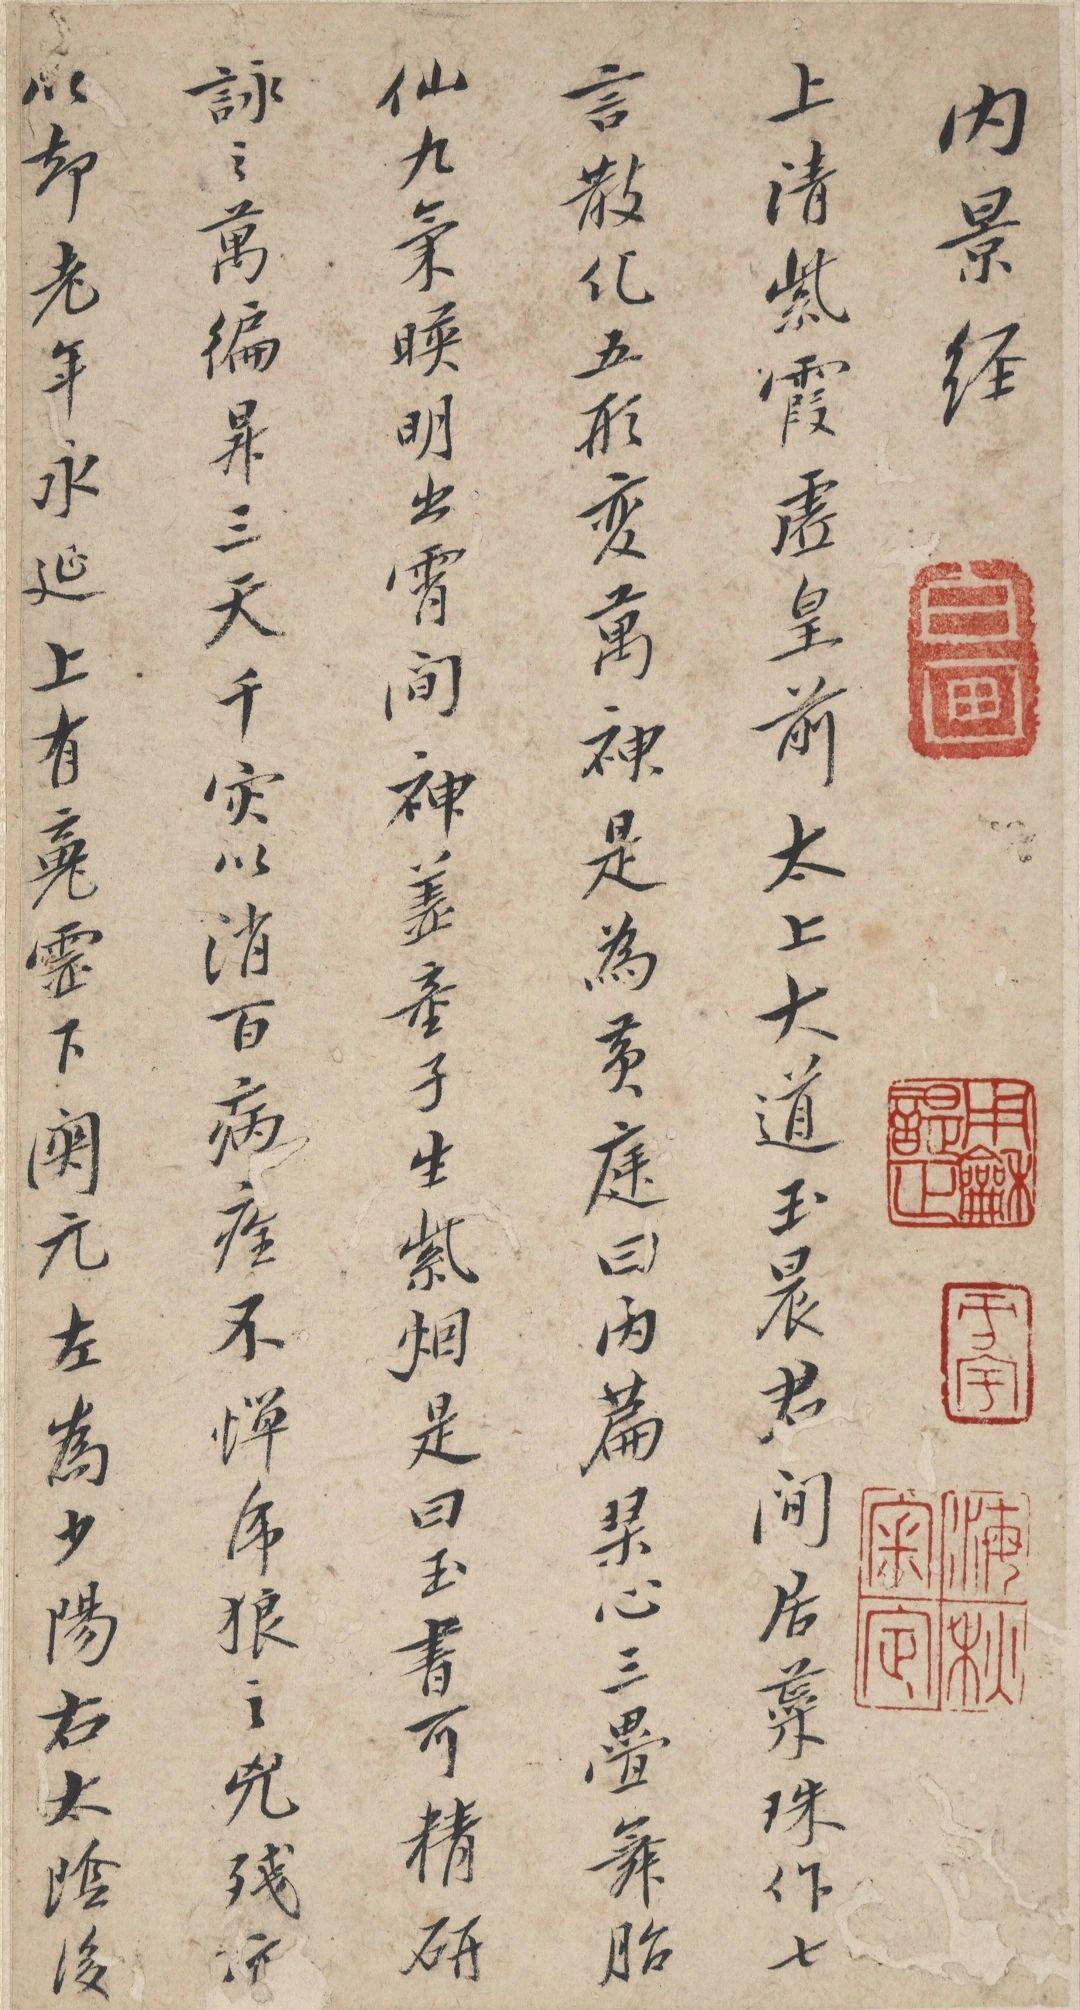 内景经
上清紫霞虚皇前太上大道玉晨君间居蘂珠作七
言散化五形变萬神是為黄庭曰内篇琹心三疊舞胎
仙九氣暎明出霄间神盖童子生紫烟是曰玉書可精研
詠之萬徧昇三天千灾以消百病痊不惮虎狼之兇残亦
以却老年永延上有䰟霊下関元左為少陽右太陰後